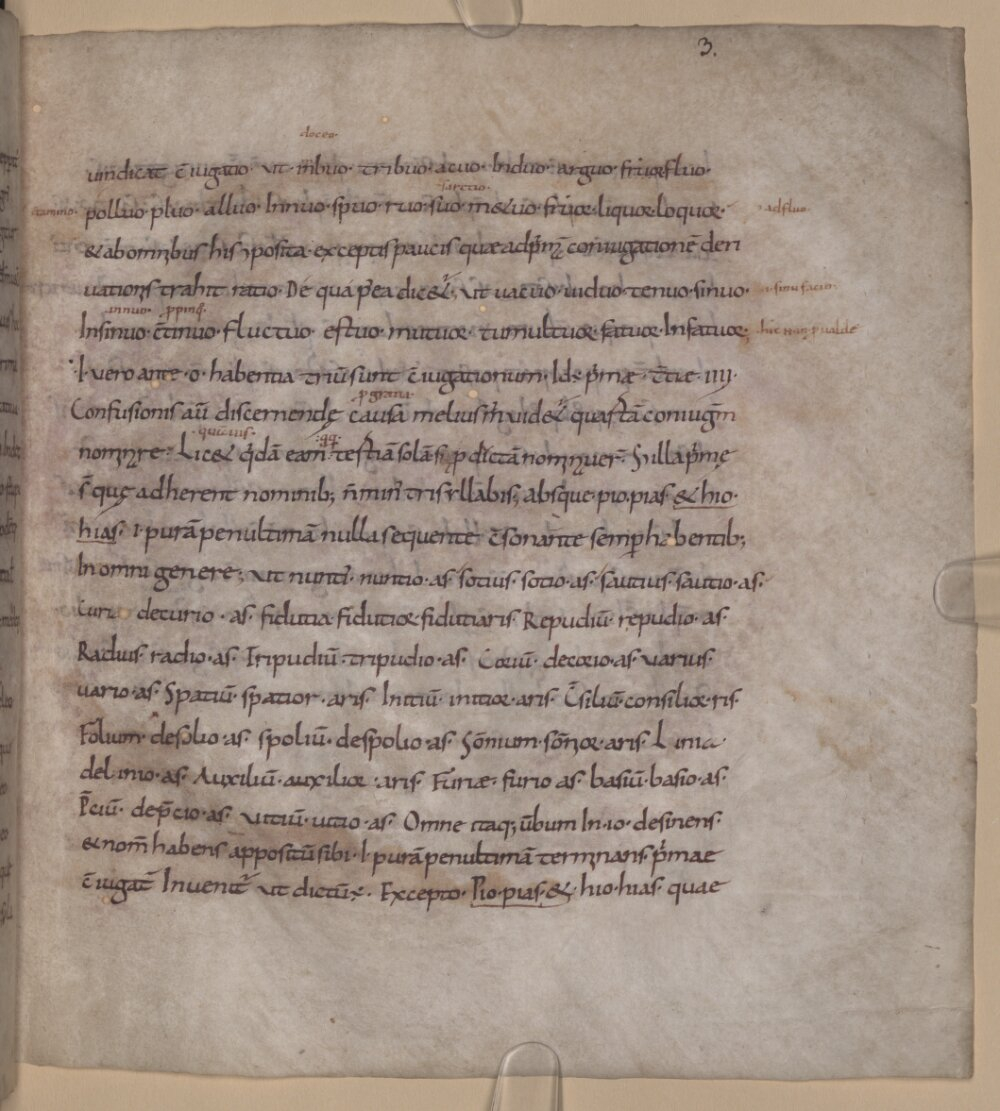 3.
docea·
uindicat c̄iugatio· ut imbuo· tribuo· acuo· Induo· arguo· fruor fluo·
sarctio·
polluo pluo· alluo· Innuo· spuo· ruo· suo· m&uo· fruor· liquor· loquor· adfluo·
& ab omnibus his ↄposita· exceptis paucis quae ad p̄mā coniugationē deri
uationis trahit ratio· De qua p̄ea dic&ur· ut uacuo· uiduo· tenuo· sinuo·
innuo· ꝓpinq̄·
Insinuo· c̄tinuo· fluctuo· estuo· mutuor· tumultuor· fatuor· Infatuor;
·I· uero ante ·o· habentia triū sunt c̄iugationum· Id ē p̄mae· t̄tie· IIII·
ꝓ grauu·
Confusionis aū discernende causa melius uid&ur quastā coniugm̄
quāuis·
nominare· Lic& q̄dā eam testiā solā ꝓ dictā nominauer̄· Sꝫ illa p̄mę
s̄ que adherent nominib; n̄ min' trisyllabis; absque· pio· pias· & hio·
hias· I· purā penultimā nulla sequente c̄sonante semꝑ habentib;
In omni genere; ut nunti'· nuntio· as· sotius· sotio· as· sautius· sautio· as·
Curia decurio · as· fidutia· fidutior· fidutiaris· Repudiū· repudio· as·
Radius· radio· as· Tripudiū· tripudio· as· Coriū· decorio· as· uarius·
uario· as· Spatiū· spatior· aris· Initiū· initior· aris· C̄siliū· consilior· ris·
Folium· desolio· as· spoliū· despolio· as· Somnium· somnior· aris· Linia·
delinio· as· Auxiliū· auxilior· aris· Furiae· furio· as· basiū· basio· as·
P̄ciū· dep̄cio· as· uitiū· uitio· as· Omne itaq; uerbum In ·io· desinens·
& nom̄ habens appositū sibi· I· purā penultimā terminans· p̄mae
c̄iugat̄ Inuenit̄ ut dictū ē· Excepto· Pio· pias· & hio· hias· quae